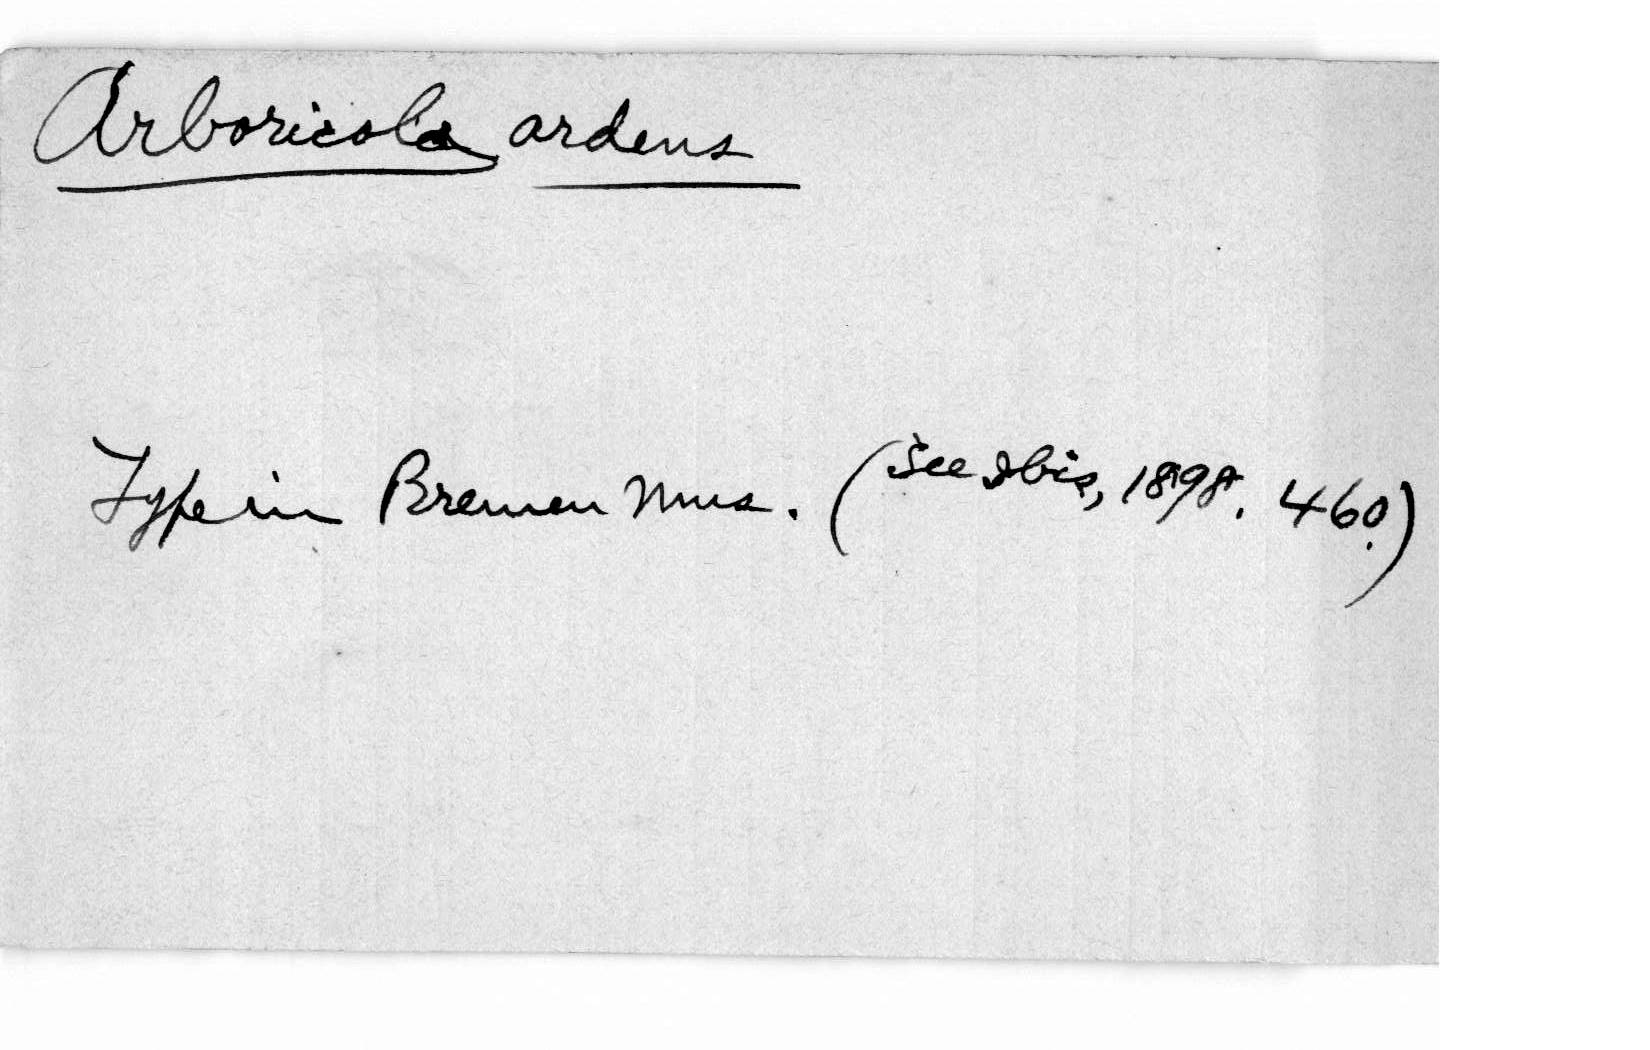 Arboricola ardens
Type in Bremen Mus. (See Ibis, 1898. 460.)